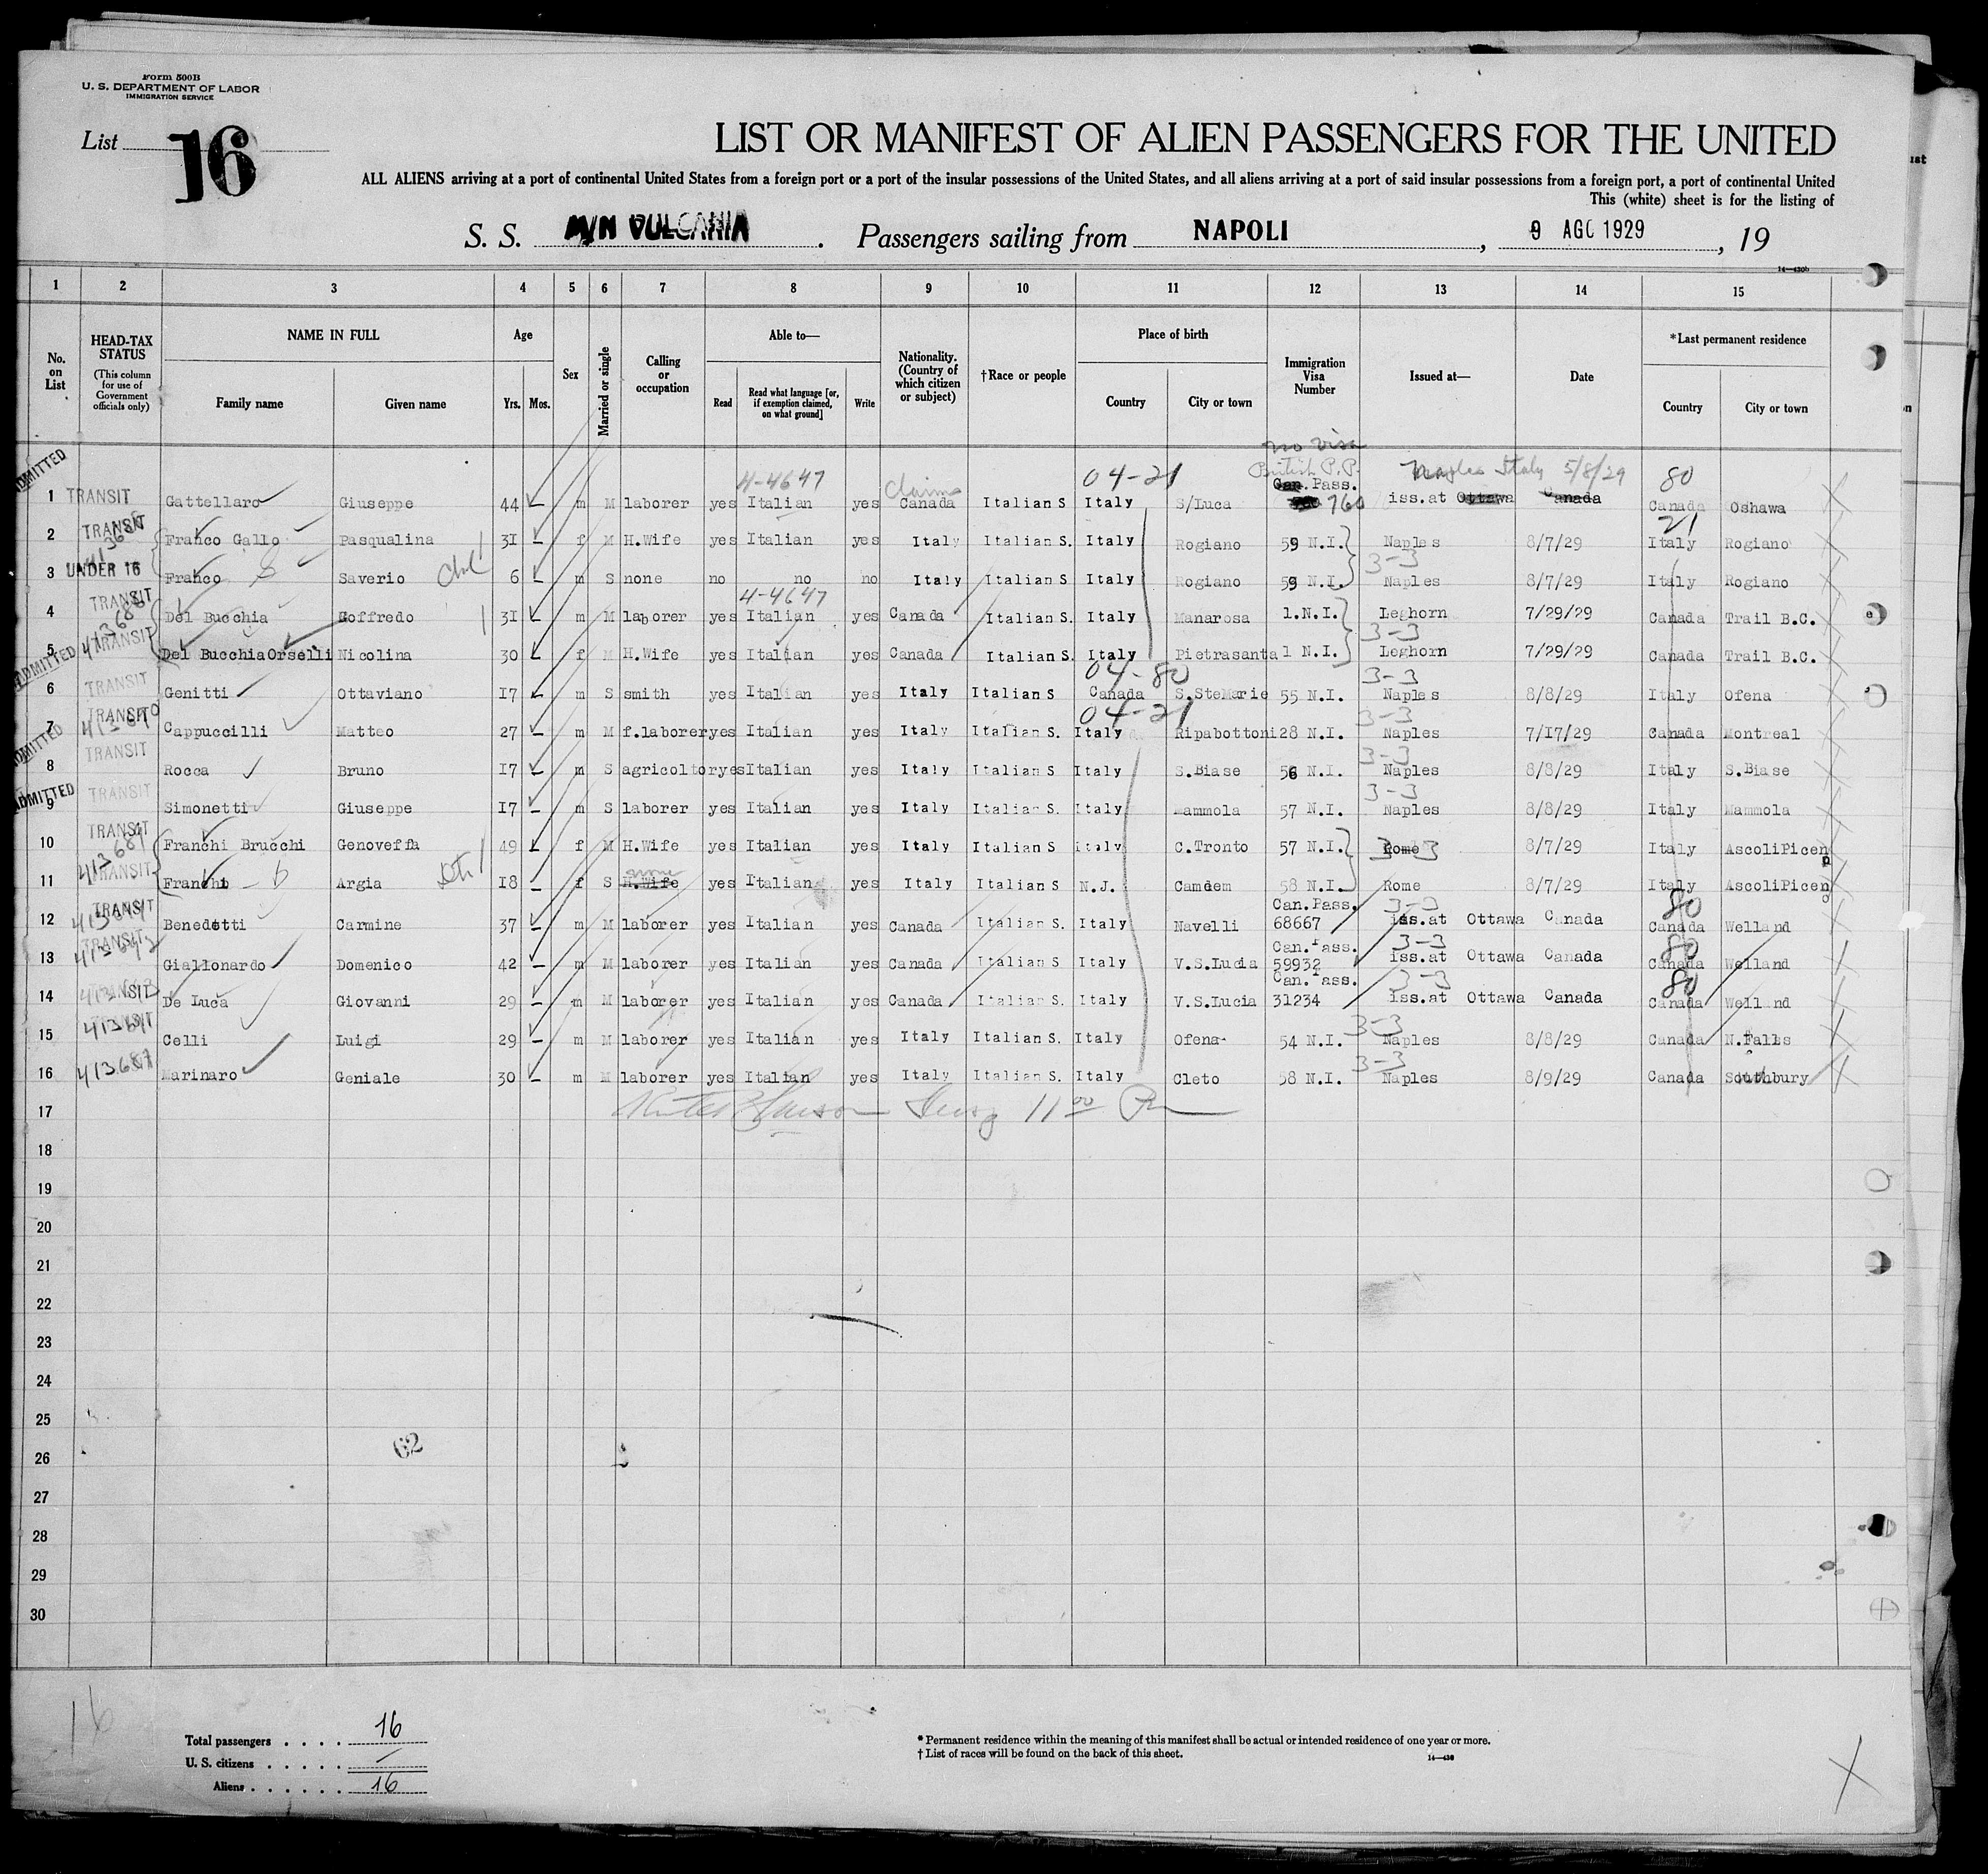 Form 500B
U. S. DEPARTMENT OF LABOR
IMMIGRATION SERVICE
List 16
LIST OR MANIFEST OF ALIEN PASSENGERS FOR THE UNITED
ALL ALIENS arriving at a port of continental United States from a foreign port or a port of the insular possessions of the United States, and all aliens arriving at a port of said insular possessions from a foreign port, a port of continental United
This (white) sheet is for the listing of
S. S. M/N VULCANIA . Passengers sailing from NAPOLI , 9 AGO 1929 , 19
14—430b
1 2 3 4 5 6 7 8 9 10 11 12 13 14 15
No. on List
HEAD-TAX STATUS (This column for use of Government officials only)
NAME IN FULL Family name Given name
Age Yrs. Mos.
Sex
Married or single
Calling or occupation
Able to— Read Read what language [or, if exemption claimed, on what ground] Write
Nationality. (Country of which citizen or subject)
†Race or people
Place of birth Country City or town
Immigration Visa Number
Issued at—
Date
*Last permanent residence Country City or town
no visa
4-4647 04-21 British P.P. Naples Italy 5/8/29 80
ADMITTED claims Can. Pass.
1 TRANSIT Gattellaro Giuseppe 44 m M laborer yes Italian yes Canada Italian S Italy S/Luca 760 iss.at Ottawa Canada Canada Oshawa
21
2 TRANSIT Franco Gallo Pasqualina 31 f M H.Wife yes Italian yes Italy Italian S. Italy Rogiano 59 N.I. Naples 8/7/29 Italy Rogiano
3-3
3 UNDER 16 Franco Saverio 6 m S none no no no Italy Italian S Italy Rogiano 59 N.I. Naples 8/7/29 Italy Rogiano
4-4647
4 TRANSIT Del Bucchia Goffredo 31 m M laborer yes Italian yes Canada Italian S. Italy Manarosa 1.N.I. Leghorn 7/29/29 Canada Trail B.C.
3-3
5 TRANSIT Del Bucchia Orselli Nicolina 30 f M H.Wife yes Italian yes Canada Italian S. Italy Pietrasanta 1 N.I. Leghorn 7/29/29 Canada Trail B.C.
ADMITTED 04-80 3-3
6 TRANSIT Genitti Ottaviano 17 m S smith yes Italian yes Italy Italian S Canada S.SteMarie 55 N.I. Naples 8/8/29 Italy Ofena
04-21 3-3
7 TRANSIT Cappuccilli Matteo 27 m M f.laborer yes Italian yes Italy Italian S. Italy Ripabottoni 28 N.I. Naples 7/17/29 Canada Montreal
ADMITTED 3-3
8 TRANSIT Rocca Bruno 17 m S agricoltor yes Italian yes Italy Italian S Italy S.Biase 56 N.I. Naples 8/8/29 Italy S.Biase
ADMITTED 3-3
9 TRANSIT Simonetti Giuseppe 17 m S laborer yes Italian yes Italy Italian S. Italy Mammola 57 N.I. Naples 8/8/29 Italy Mammola
10 TRANSIT Franchi Brucchi Genoveffa 49 f M H.Wife yes Italian yes Italy Italian S Italy C.Tronto 57 N.I. Rome 8/7/29 Italy AscoliPiceno
none
11 TRANSIT Franchi Argia 18 f S H.Wife yes Italian yes Italy Italian S N.J. Camdem 58 N.I. Rome 8/7/29 Italy AscoliPiceno
Can.Pass. 3-3 80
12 TRANSIT Benedetti Carmine 37 m M laborer yes Italian yes Canada Italian S. Italy Navelli 68667 iss.at Ottawa Canada Canada Welland
Can.Pass. 3-3 80
13 TRANSIT Giallonardo Domenico 42 m M laborer yes Italian yes Canada Italian S Italy V.S.Lucia 59932 iss.at Ottawa Canada Canada Welland
Can.Pass. 3-3 80
14 TRANSIT De Luca Giovanni 29 m M laborer yes Italian yes Canada Italian S. Italy V.S.Lucia 31234 iss.at Ottawa Canada Canada Welland
3-3
15 Celli Luigi 29 m M laborer yes Italian yes Italy Italian S. Italy Ofena 54 N.I. Naples 8/8/29 Canada N.Falls
3-3
16 413687 Marinaro Geniale 30 m M laborer yes Italian yes Italy Italian S. Italy Cleto 58 N.I. Naples 8/9/29 Canada Southbury
17 11 00
18
19
20
21
22
23
24
25
26 62
27
28
29
30
16
Total passengers . . . . 16
U. S. citizens . . . . . —
Aliens . . . . . . 16
* Permanent residence within the meaning of this manifest shall be actual or intended residence of one year or more.
† List of races will be found on the back of this sheet.
14—430